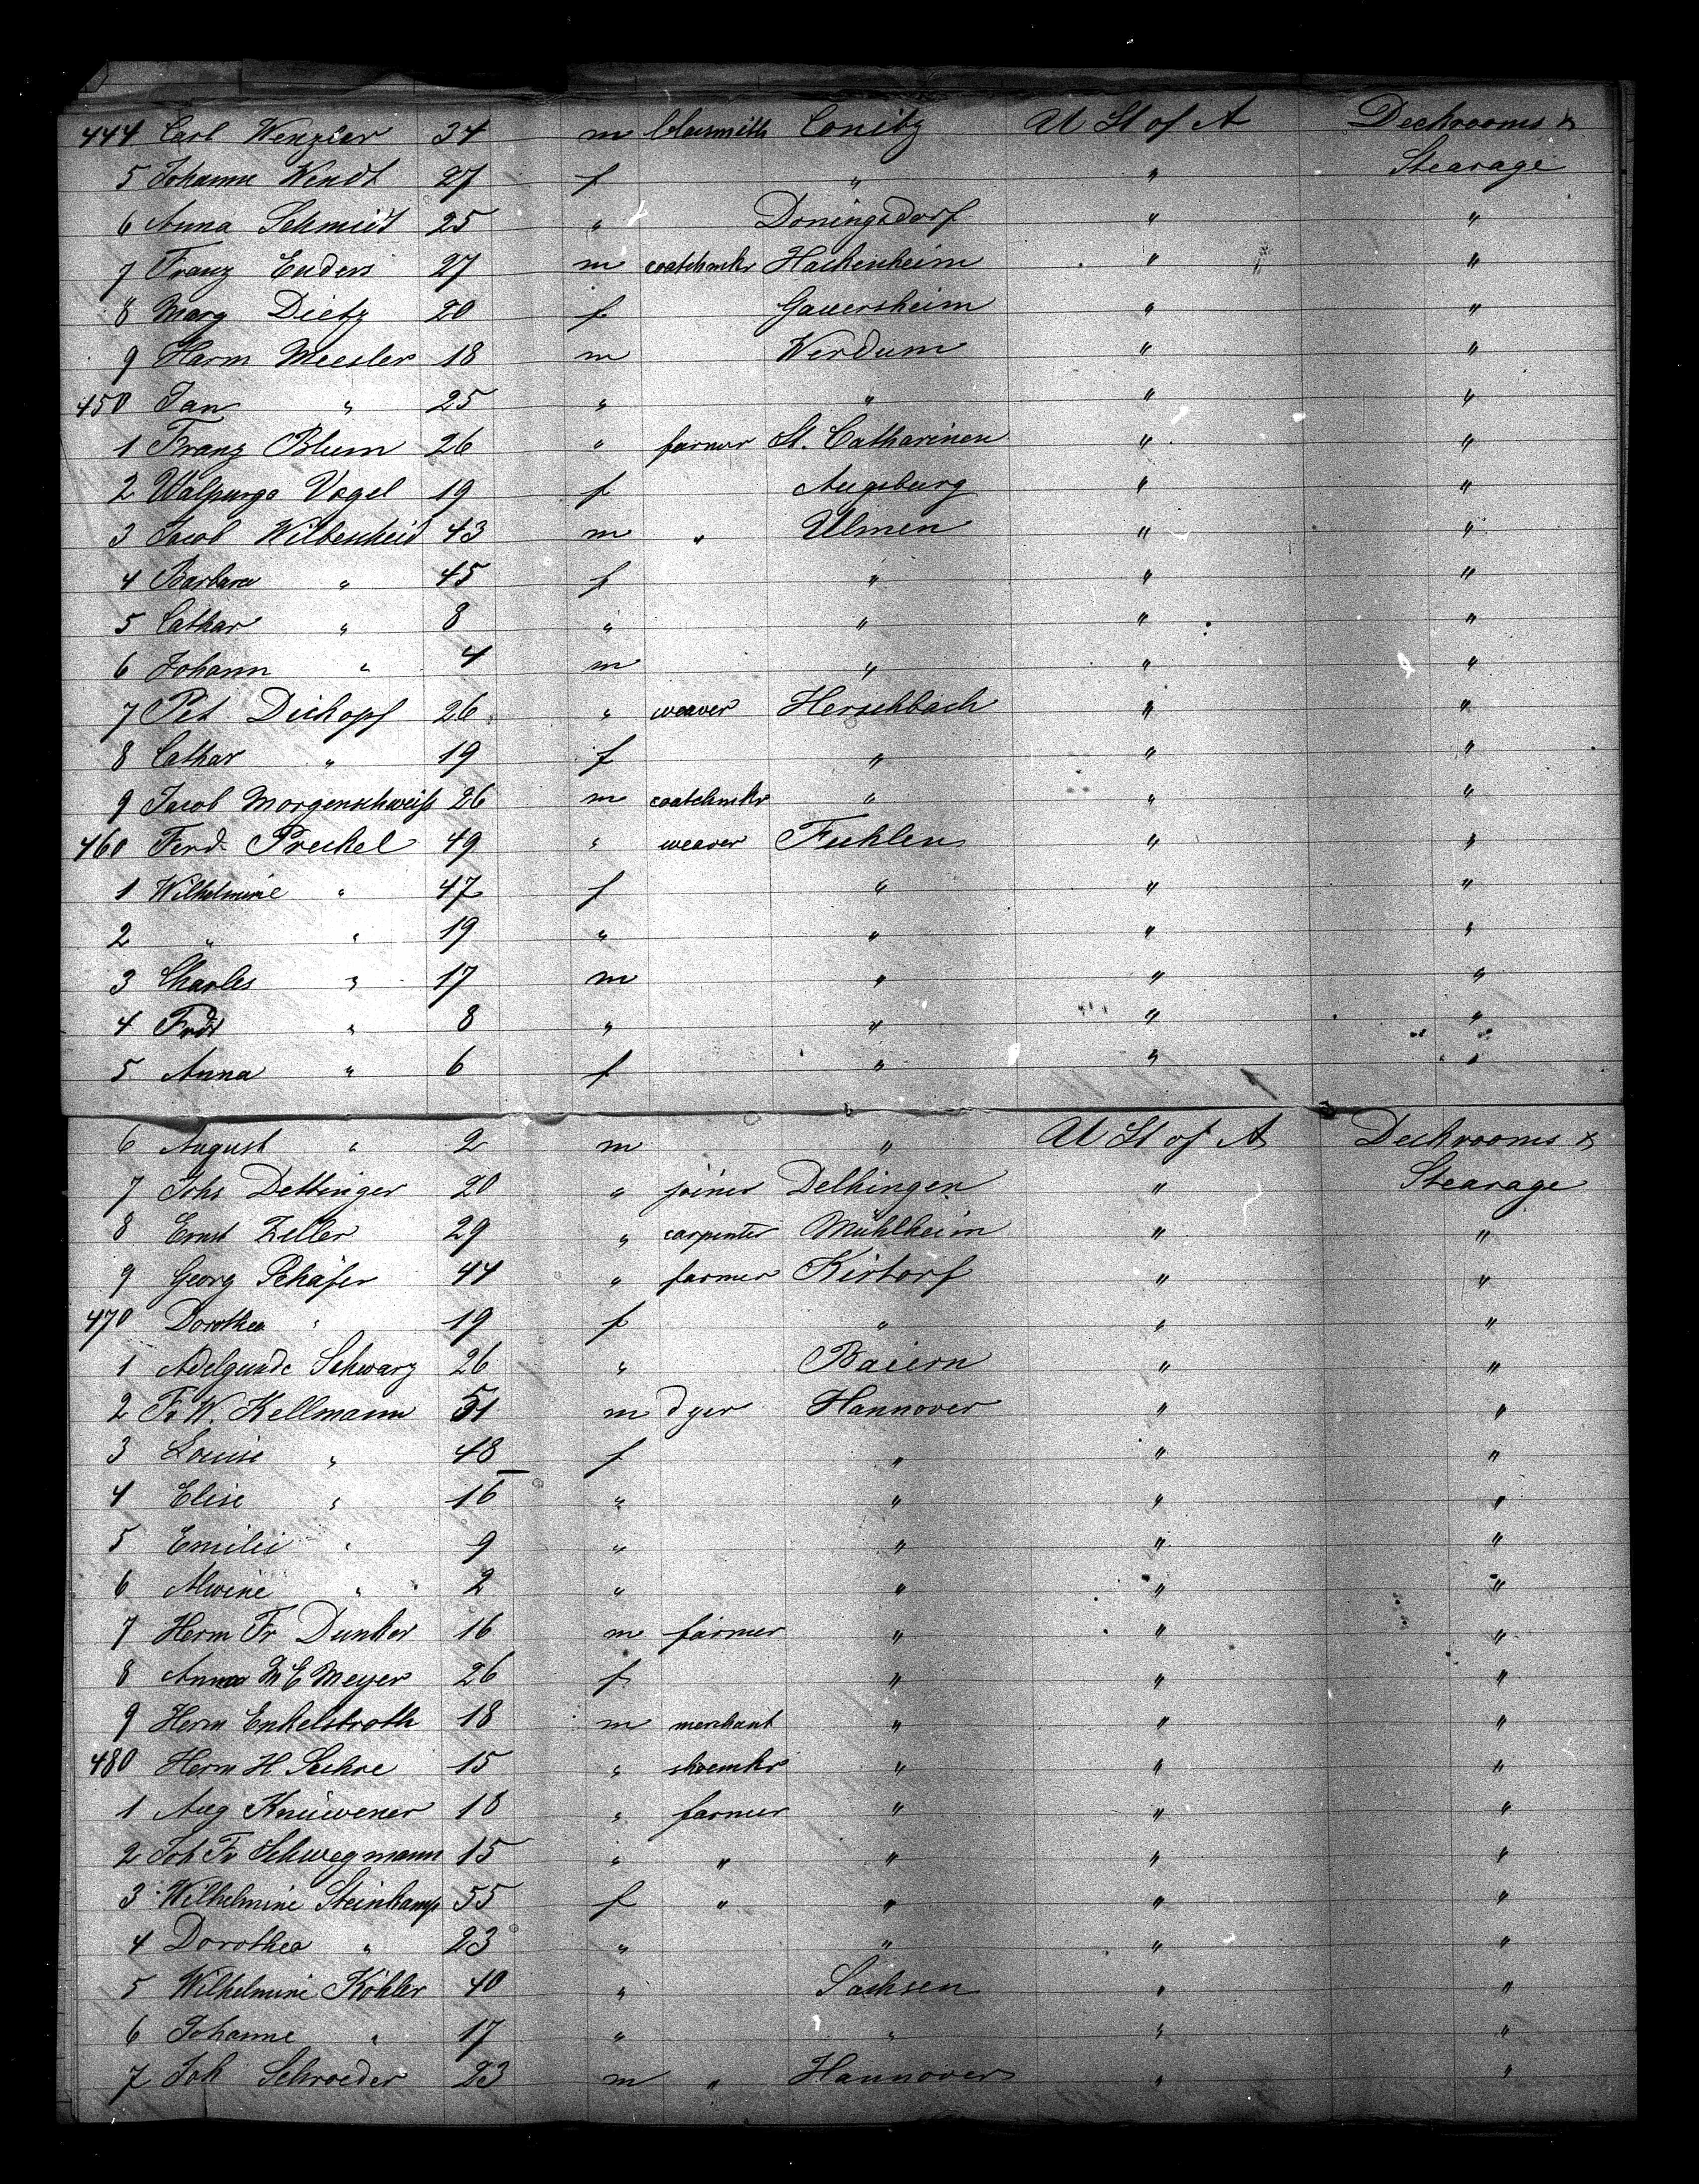 444 Carl Wenzler 34 m blacsmith Conitz U St of A Deckrooms &
5 Johanne Wendt 27 f " " Stearage
6 Anna Schmidt 25 " Doningsdorf " "
7 Franz Enders 27 m coatchmkr Hackenheim " "
8 Marg Dietz 20 f Gauersheim " "
9 Harm Meesler 18 m Werdum " "
450 Jan " 25 " " " "
1 Franz Blum 26 " farmer St. Catharinen " "
2 Walpurga Vogel 19 f Augsburg " "
3 Jacob Wilbescheid 43 m " Ulmen " "
4 Barbara " 45 f " " "
5 Cathar " 8 " " " "
6 Johann " 4 m " " "
7 Pet Dickopf 26 " weaver Herschbach " "
8 Cathar " 19 f " " "
9 Jacob Morgenschweiß 26 m coatchmkr " " "
460 Ferd. Preckel 49 " weaver Fuhlen " "
1 Wilhelmine " 47 f " " "
2 " " 19 " " " "
3 Charles " 17 m " " "
4 Fredr " 8 " " " "
5 Anna " 6 f " " "
6 August " 2 m " U St of A Deckrooms &
7 Johs Dettinger 20 " joiner Delkingen " Stearage
8 Ernst Zeller 29 " carpenter Mühlheim " "
9 Georg Schäfer 44 " farmer Kirtorf " "
470 Dorothea " 19 f " " "
1 Adelgunde Schwarz 26 " Baiern " "
2 Fr W. Kellmann 51 m dyer Hannover " "
3 Louise " 48 f " " "
4 Elise " 16 " " " "
5 Emilie " 9 " " " "
6 Alwine " 2 " " " "
7 Herm Fr Dunker 16 m farmer " " "
8 Anna M E Meyer 26 f " " "
9 Herm Enkelstroth 18 m merchant " " "
480 Herm H 15 " shoemkr " " "
1 Aug Knüwener 18 " farmer " " "
2 Joh Fr Schwegmann 15 " " " " "
3 Wilhelmine Steinkamp 55 f " " " "
4 Dorothea " 23 " " " "
5 Wilhelmine Köhler 40 " Sachsen " "
6 Johanne " 17 " " " "
7 Joh Schroeder 23 m " Hannover " "